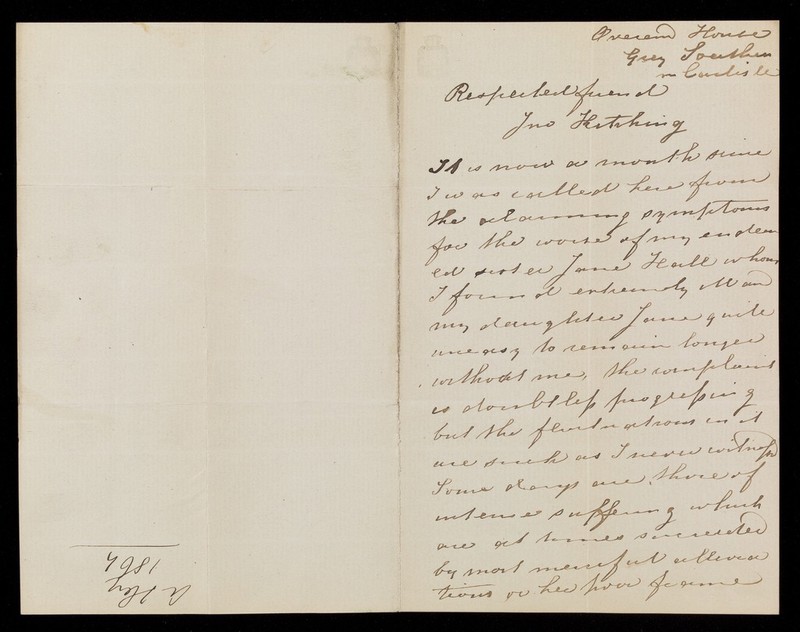 House
Grey Southen
Carlisle
Respected friend
Jno Hitching
It is now a month since
I was called here from
the alarming symptoms
for the worse of my endear
ed sister Jane Hall whom
I found extremely ill and
my daughter Jane quite
uneasy to remain longer
without me, the complaint
is doubtless progressing
but the fluctuations in it
are such as I never witness
Some days are those of
intense suffering which
are at times succeeded
by most merciful allevia
tions or her poor frame
1864